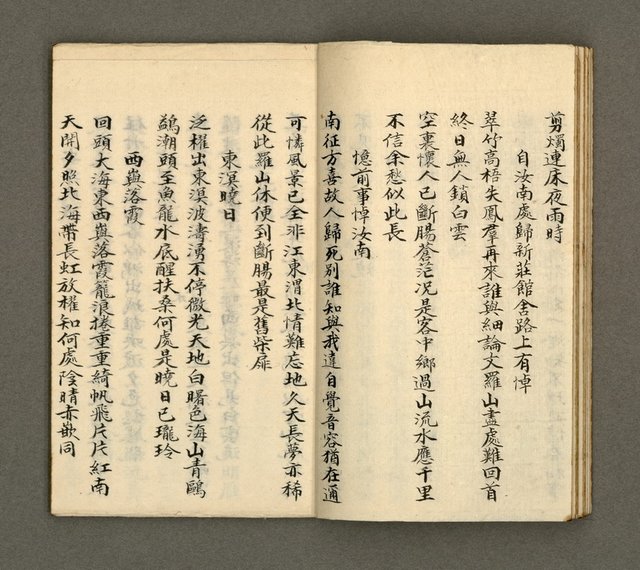 剪燭連床夜雨時
自汝南處歸新莊館舍路上有悼
翠竹高梧失鳳羣再來誰與細論文羅山盡處難回首
終日無人鎖白雲
空裏懷人已斷腸蒼茫况是客中鄉過山流水應千里
不信余愁似此長
憶前事悼汝南
南征方喜故人歸死別誰知與我違自覺音容猶在通
可憐風景已全非江東渭北情難忘地久天長夢亦稀
從此羅山休便到斷腸最是舊柴扉
東溟曉日
泛櫂出東溟波濤湧不停微光天地白曙色海山青鷗
鷁潮頭至魚龍水底醒扶桑何處是曉日已瓏玲
西嶼落霞
回頭大海東西嶼落霞籠浪捲重重綺帆飛片片紅南
天開夕照北海帶長虹放櫂知何處陰晴赤歎同